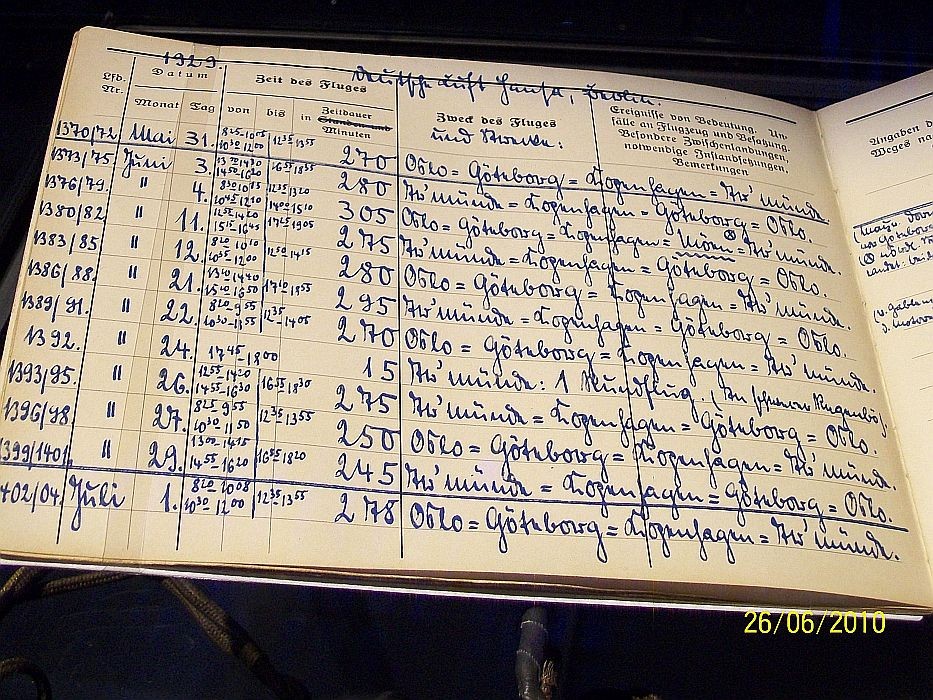 1929.
Deutsche Luft Hansa, Berlin.
Lfd. Nr.
Datum
Zeit des Fluges
Monat Tag von bis in Zeitdauer Stundenund Minuten
Zweck des Fluges
und Strecke:
Ereignisse von Bedeutung. Un-
fälle an Flugzeug und Besatzung.
Besondere Zwischenlandungen,
notwendige Instandsetzungen,
Bemerkungen
1370/72 Mai 31. 8 25 - 10 05 10 30 - 12 00 12 35 - 13 55 270 Oslo = Göteborg = Kopenhagen = Tr'münde.
1373/75 Juni 3. 16 55 - 18 35 280 Tr'münde = Kopenhagen = Göteborg = Oslo.
1376/79. " 4. 8 30 - 10 15 10 45 - 12 10 12 35 - 13 20 14 00 - 15 10 305 Oslo = Göteborg = Kopenhagen = = Tr'münde.
1380/82 " 11. 17 25 - 19 05 275 Tr'münde = Kopenhagen = Göteborg = Oslo.
1383/85 " 12. 8 20 - 10 10 10 35 - 12 00 12 50 - 14 15 280 Oslo = Göteborg = Kopenhagen = Tr'münde.
1386/88. " 21. 13 10 - 14 40 15 10 - 16 50 17 10 - 18 55 295 Tr'münde = Kopenhagen = Göteborg = Oslo.
1389/91. " 22. 8 20 - 9 55 10 30 - 11 55 12 35 - 14 05 270 Oslo = Göteborg = Kopenhagen = Tr'münde.
1392. " 24. 17 45 - 18 00 15 Tr'münde: 1 Rundflug.
1393/95. " 26. 12 55 - 14 20 14 55 - 16 30 16 55 - 18 30 275 Tr'münde = Kopenhagen = Göteborg = Oslo.
1396/98 " 27. 8 25 - 9 55 10 30 - 11 50 12 35 - 13 55 250 Oslo = Göteborg = Kopenhagen = Tr'münde.
1399/1401. " 29. 13 00 - 14 15 14 55 - 16 20 16 45 - 18 20 245 Tr'münde = Kopenhagen = Göteborg = Oslo.
402/04. Juli 1. 8 20 - 10 08 10 30 - 12 00 12 35 - 13 55 278 Oslo = Göteborg = Kopenhagen = Tr'münde.
Angaben
Weges
26/06/2010